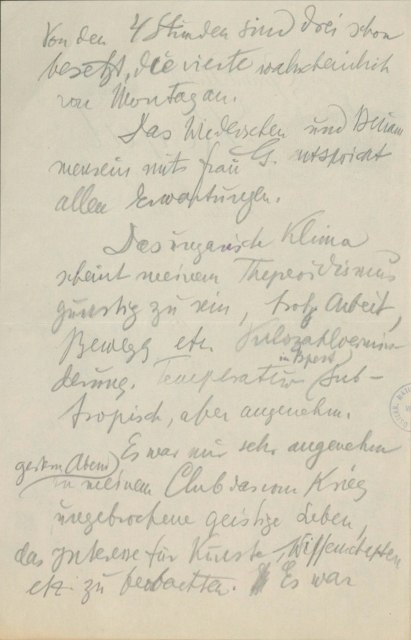 Von den 4 Stunden sind drei schon
besetzt, die vierte wahrscheinlich
von Montag an.
Das Wiedersehen und Beisam
mensein mits Frau G. entspricht
allen Erwartungen.
Das ungarische Klima
scheint meinem Thyreoidismus
günstig zu sein, trotz Arbeit,
Bewegg etc. Pulszahlvermin
derung. Temperatur sub-
in Bpest
tropisch, aber angenehm.
Es war mir sehr angenehm
gestern Abend
in meinem Club das vom Krieg
ungebrochene geistige Leben,
das Interesse für Künste, Wissenschaften
etz zu beobachten. Es war